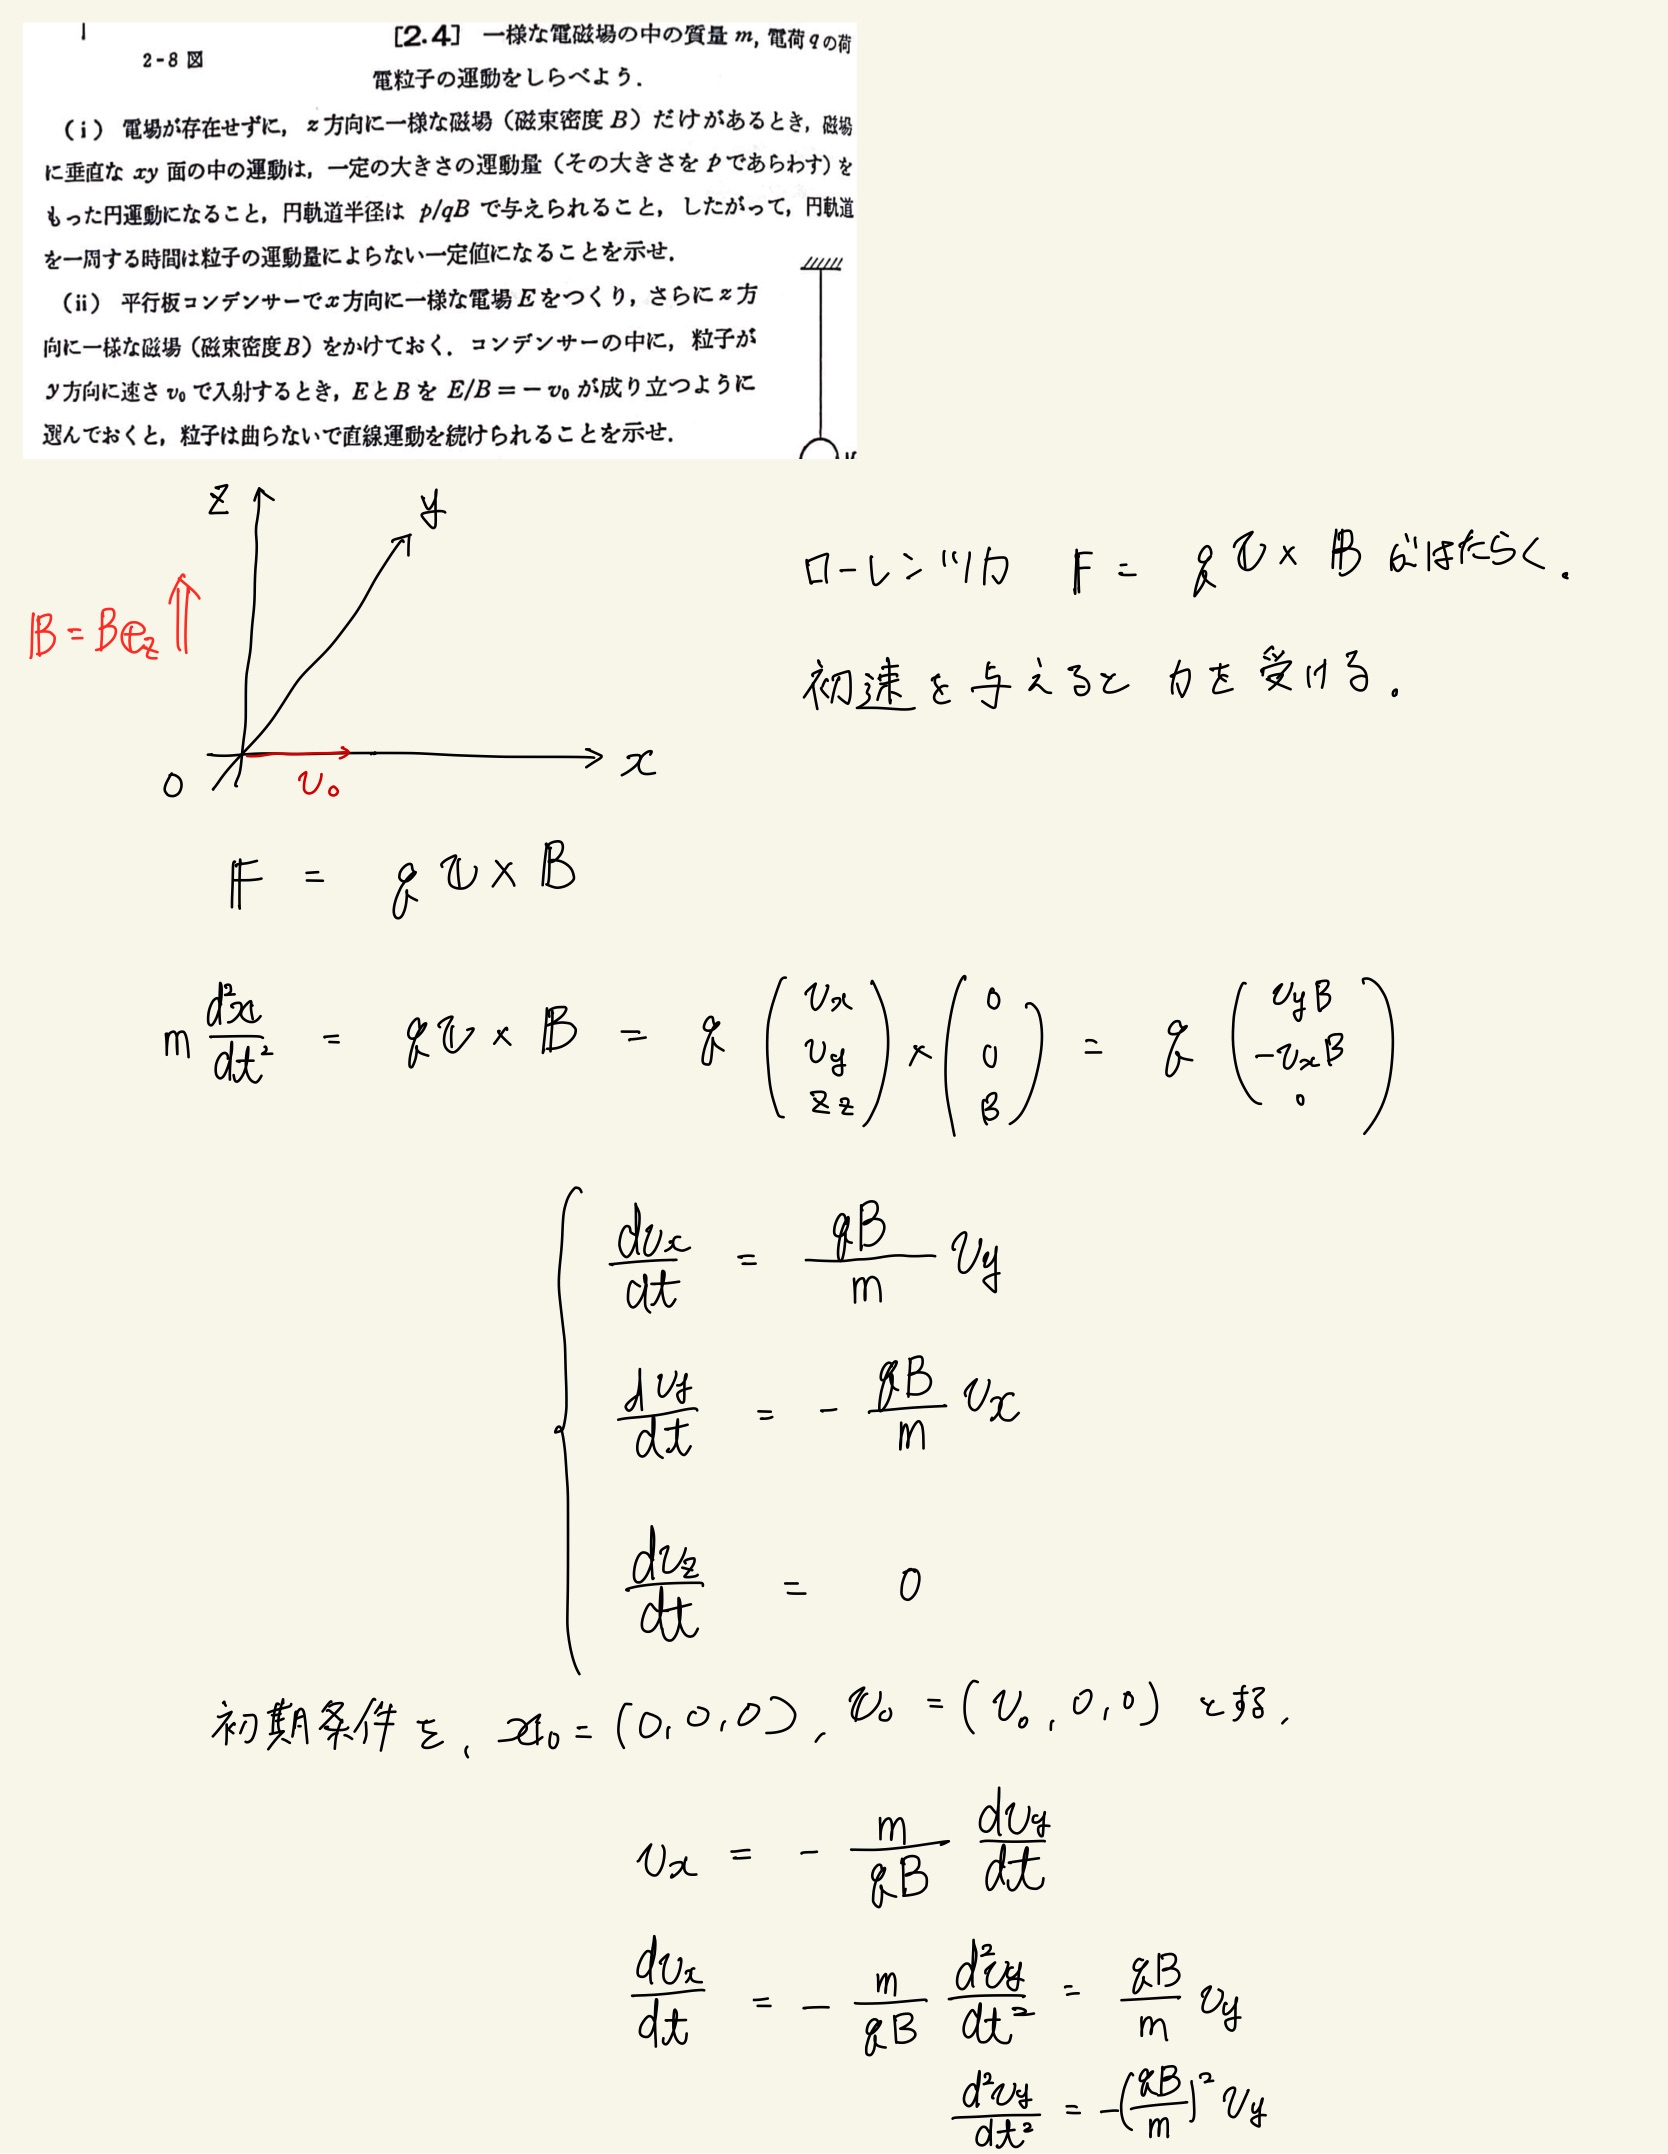 2-8 図
[2.4] 一様な電磁場の中の質量 m, 電荷 q の荷
電粒子の運動をしらべよう.
(i) 電場が存在せずに, z 方向に一様な磁場(磁束密度 B)だけがあるとき, 磁場
に垂直な xy 面の中の運動は, 一定の大きさの運動量(その大きさを p であらわす)を
もった円運動になること, 円軌道半径は p/qB で与えられること, したがって, 円軌道
を一周する時間は粒子の運動量によらない一定値になることを示せ.
(ii) 平行板コンデンサーで x 方向に一様な電場 E をつくり, さらに z 方
向に一様な磁場(磁束密度 B)をかけておく. コンデンサーの中に, 粒子が
y 方向に速さ v₀ で入射するとき, E と B を E/B = − v₀ が成り立つように
選んでおくと, 粒子は曲らないで直線運動を続けられることを示せ.
z
y
𝔹 = B𝕖z
O
v₀
x
ローレンツ力 𝔽 = q 𝕧 × 𝔹 がはたらく.
初速を与えると力を受ける.
𝔽 = q 𝕧 × 𝔹
m d²𝕩/dt² = q𝕧 × 𝔹 = q (vx, vy, zz) × (0, 0, B) = q (vyB, -vxB, 0)
dvx/dt = qB/m vy
dvy/dt = - qB/m vx
dvz/dt = 0
初期条件を, 𝕩₀ = (0, 0, 0), 𝕧₀ = (v₀, 0, 0) とする.
vx = - m/qB dvy/dt
dvx/dt = - m/qB d²vy/dt² = qB/m vy
d²vy/dt² = -(qB/m)² vy